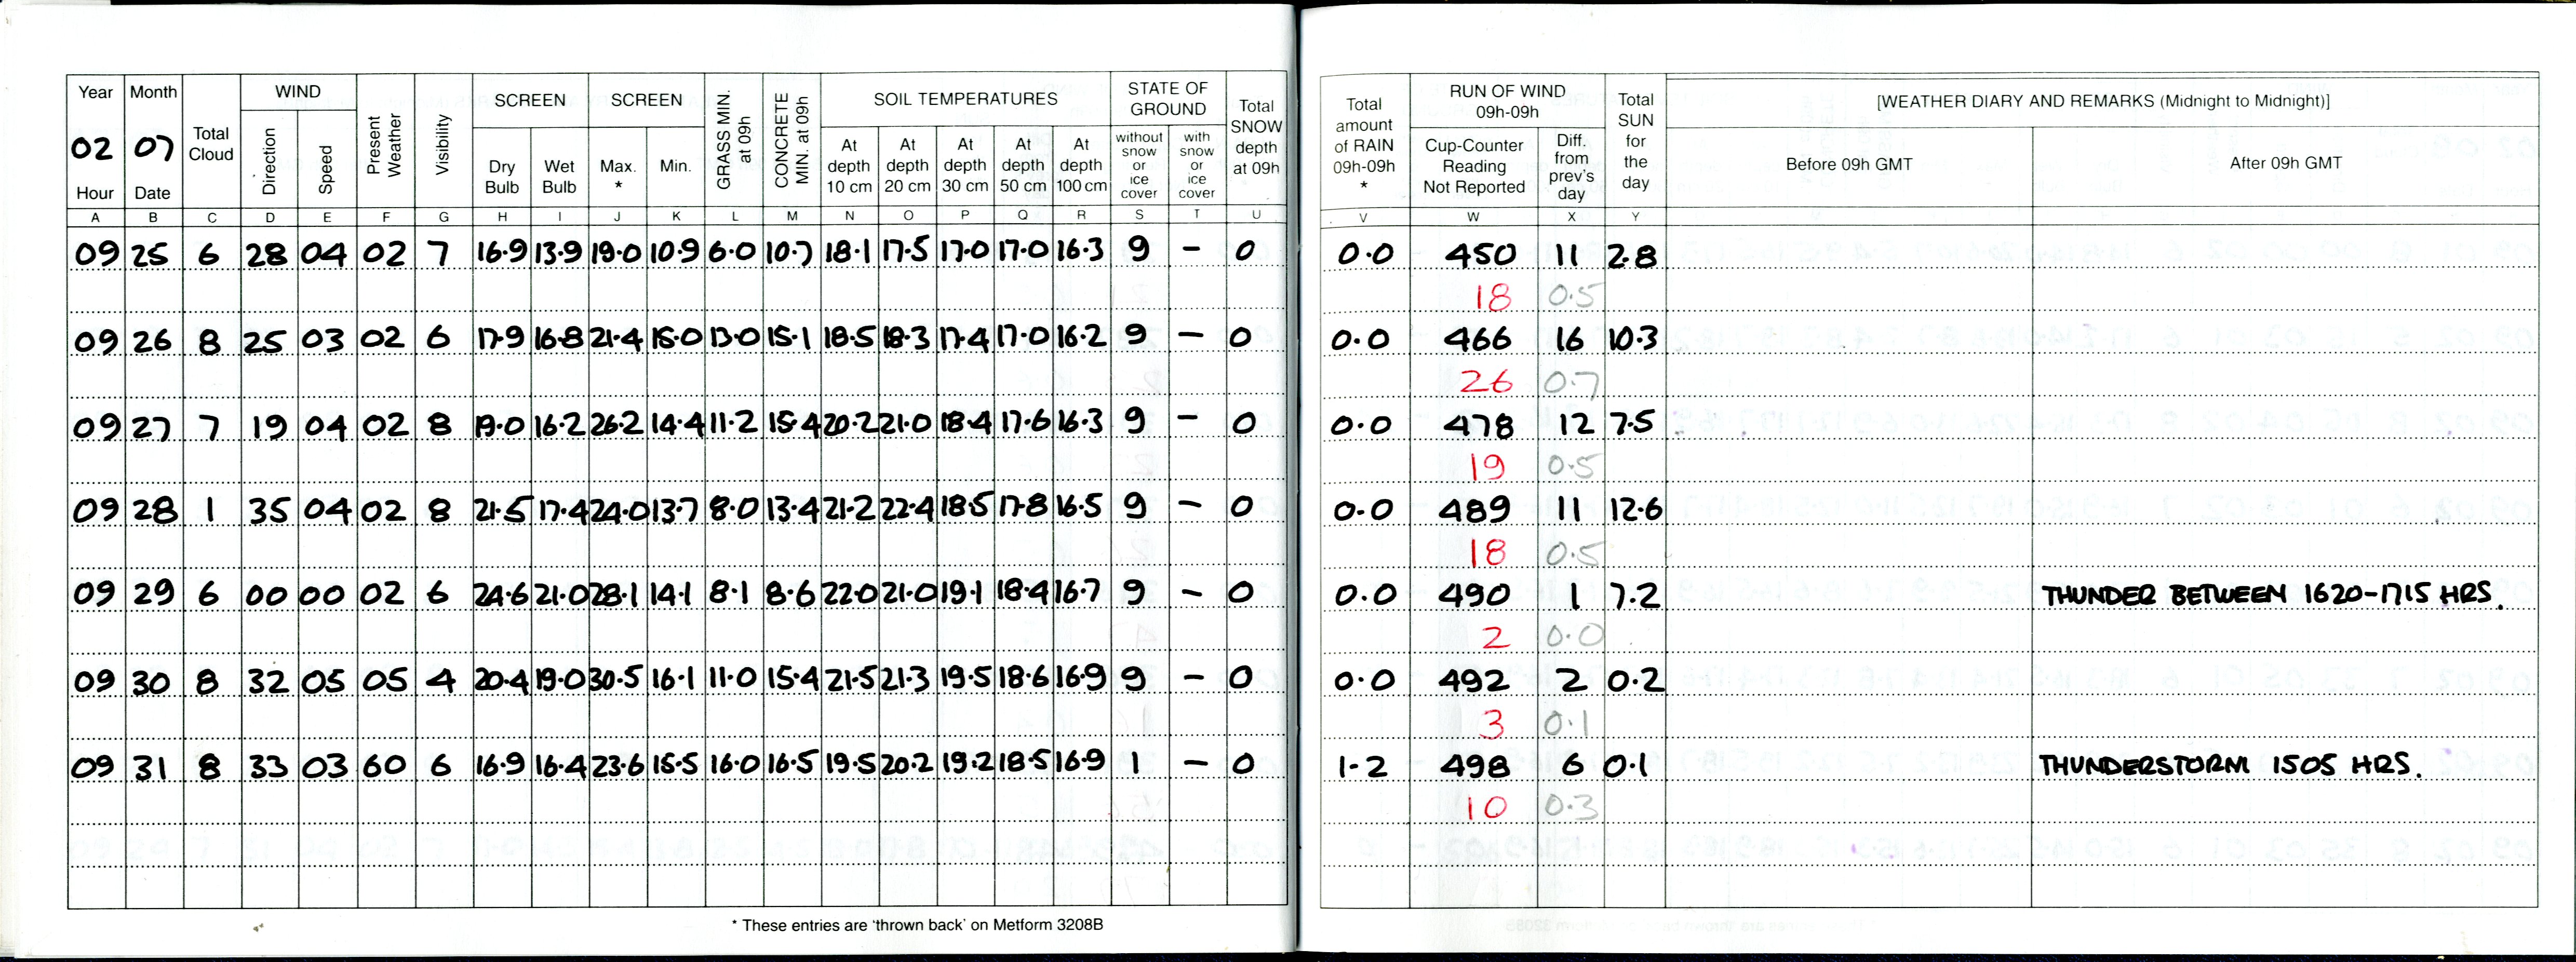 Year Month Total Cloud WIND Present Weather Visibility SCREEN SCREEN GRASS MIN. at 09h CONCRETE MIN. at 09h SOIL TEMPERATURES STATE OF GROUND Total SNOW depth at 09h Total amount of RAIN 09h-09h * RUN OF WIND 09h-09h Total SUN for the day [WEATHER DIARY AND REMARKS (Midnight to Midnight)]
02 07 Direction Speed Dry Bulb Wet Bulb Max. * Min. At depth 10 cm At depth 20 cm At depth 30 cm At depth 50 cm At depth 100 cm without snow or ice cover with snow or ice cover Cup-Counter Reading Not Reported Diff. from prev's day Before 09h GMT After 09h GMT
Hour Date
A B C D E F G H I J K L M N O P Q R S T U V W X Y
09 25 6 28 04 02 7 16.9 13.9 19.0 10.9 6.0 10.7 18.1 17.5 17.0 17.0 16.3 9 – 0 0.0 450 11 2.8
18 0.5
09 26 8 25 03 02 6 17.9 16.8 21.4 15.0 13.0 15.1 18.5 18.3 17.4 17.0 16.2 9 – 0 0.0 466 16 10.3
26 0.7
09 27 7 19 04 02 8 19.0 16.2 26.2 14.4 11.2 15.4 20.2 21.0 18.4 17.6 16.3 9 – 0 0.0 478 12 7.5
19 0.5
09 28 1 35 04 02 8 21.5 17.4 24.0 13.7 8.0 13.4 21.2 22.4 18.5 17.8 16.5 9 – 0 0.0 489 11 12.6
18 0.5
09 29 6 00 00 02 6 24.6 21.0 28.1 14.1 8.1 8.6 22.0 21.0 19.1 18.4 16.7 9 – 0 0.0 490 1 7.2 THUNDER BETWEEN 1620-1715 HRS.
2 0.0
09 30 8 32 05 05 4 20.4 19.0 30.5 16.1 11.0 15.4 21.5 21.3 19.5 18.6 16.9 9 – 0 0.0 492 2 0.2
3 0.1
09 31 8 33 03 60 6 16.9 16.4 23.6 15.5 16.0 16.5 19.5 20.2 19.2 18.5 16.9 1 – 0 1.2 498 6 0.1 THUNDERSTORM 1505 HRS.
10 0.3
* These entries are 'thrown back' on Metform 3208B